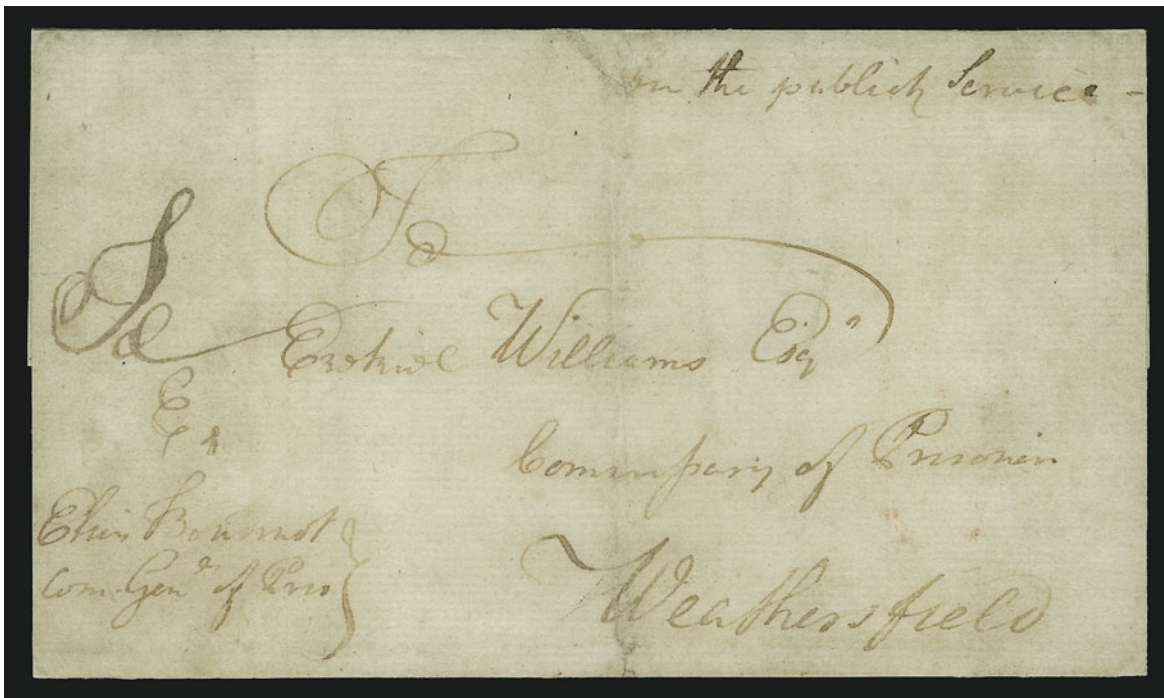 on the publick Service -
To
Ezekiel Williams Esqr
Commissary of Prisoners
Weathersfield
Elias Boudinot
Com. Genl of Pris